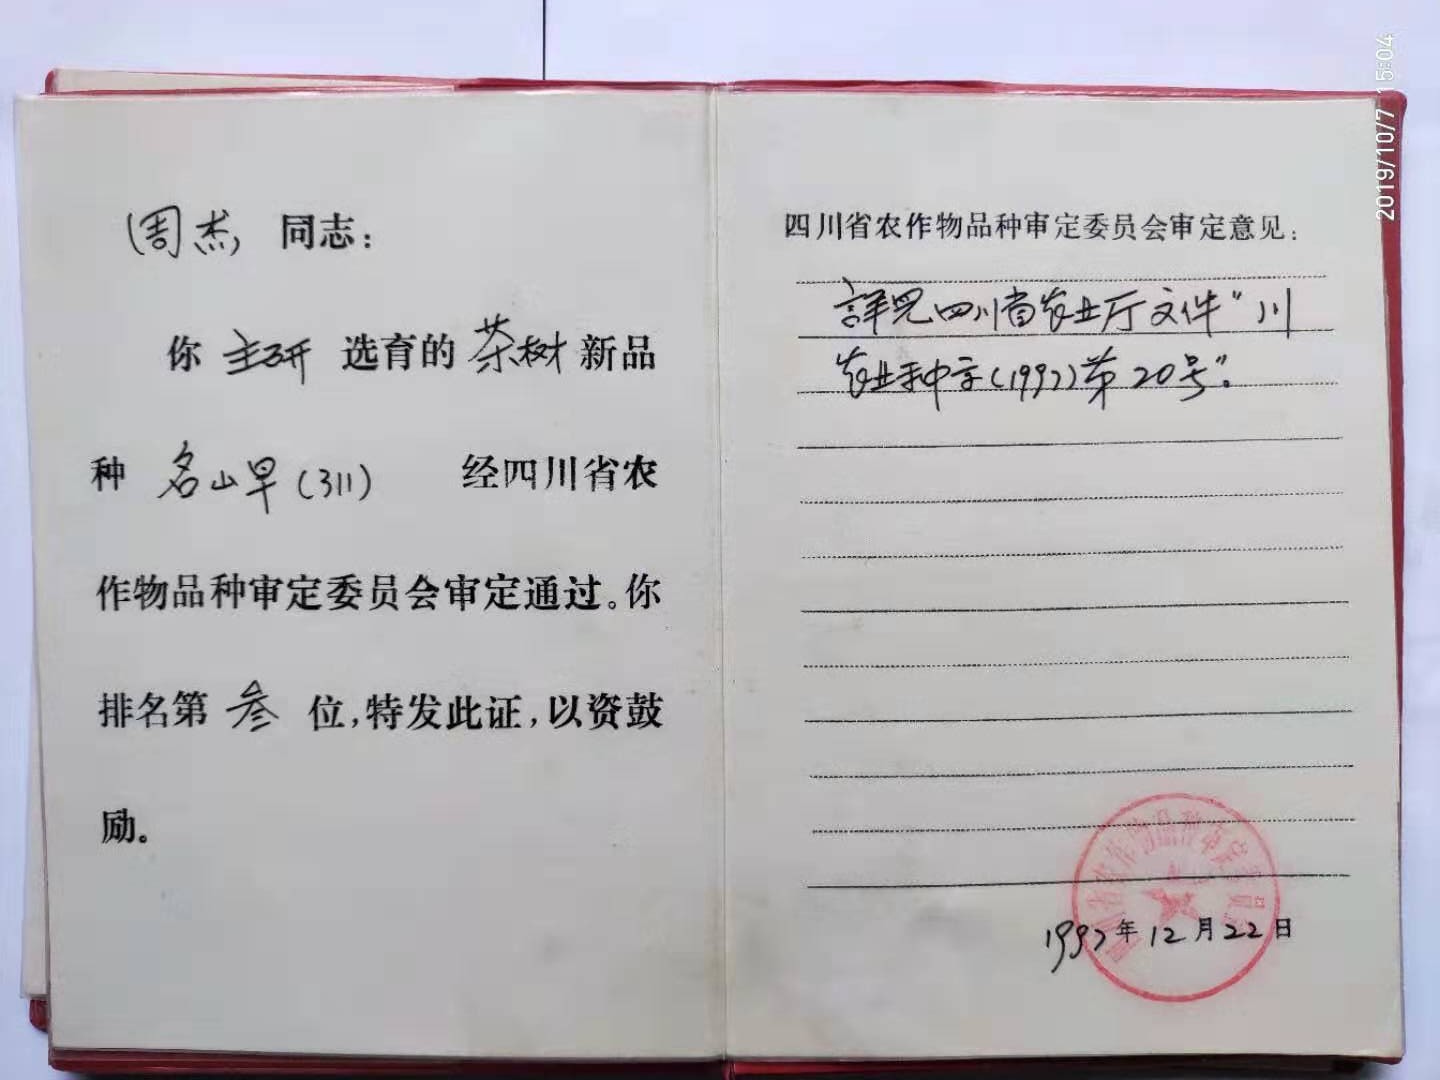 周杰 同志：
你 主研 选育的 茶树 新品
种 名山早(311) 经四川省农
作物品种审定委员会审定通过。你
排名第 叁 位，特发此证，以资鼓
励。
四川省农作物品种审定委员会审定意见：
詳见四川省农业厅文件"川
农业种字(1997)第20号"。
四川省农作物品种审定委员会
1997年12月22日
2019/10/7 15:04